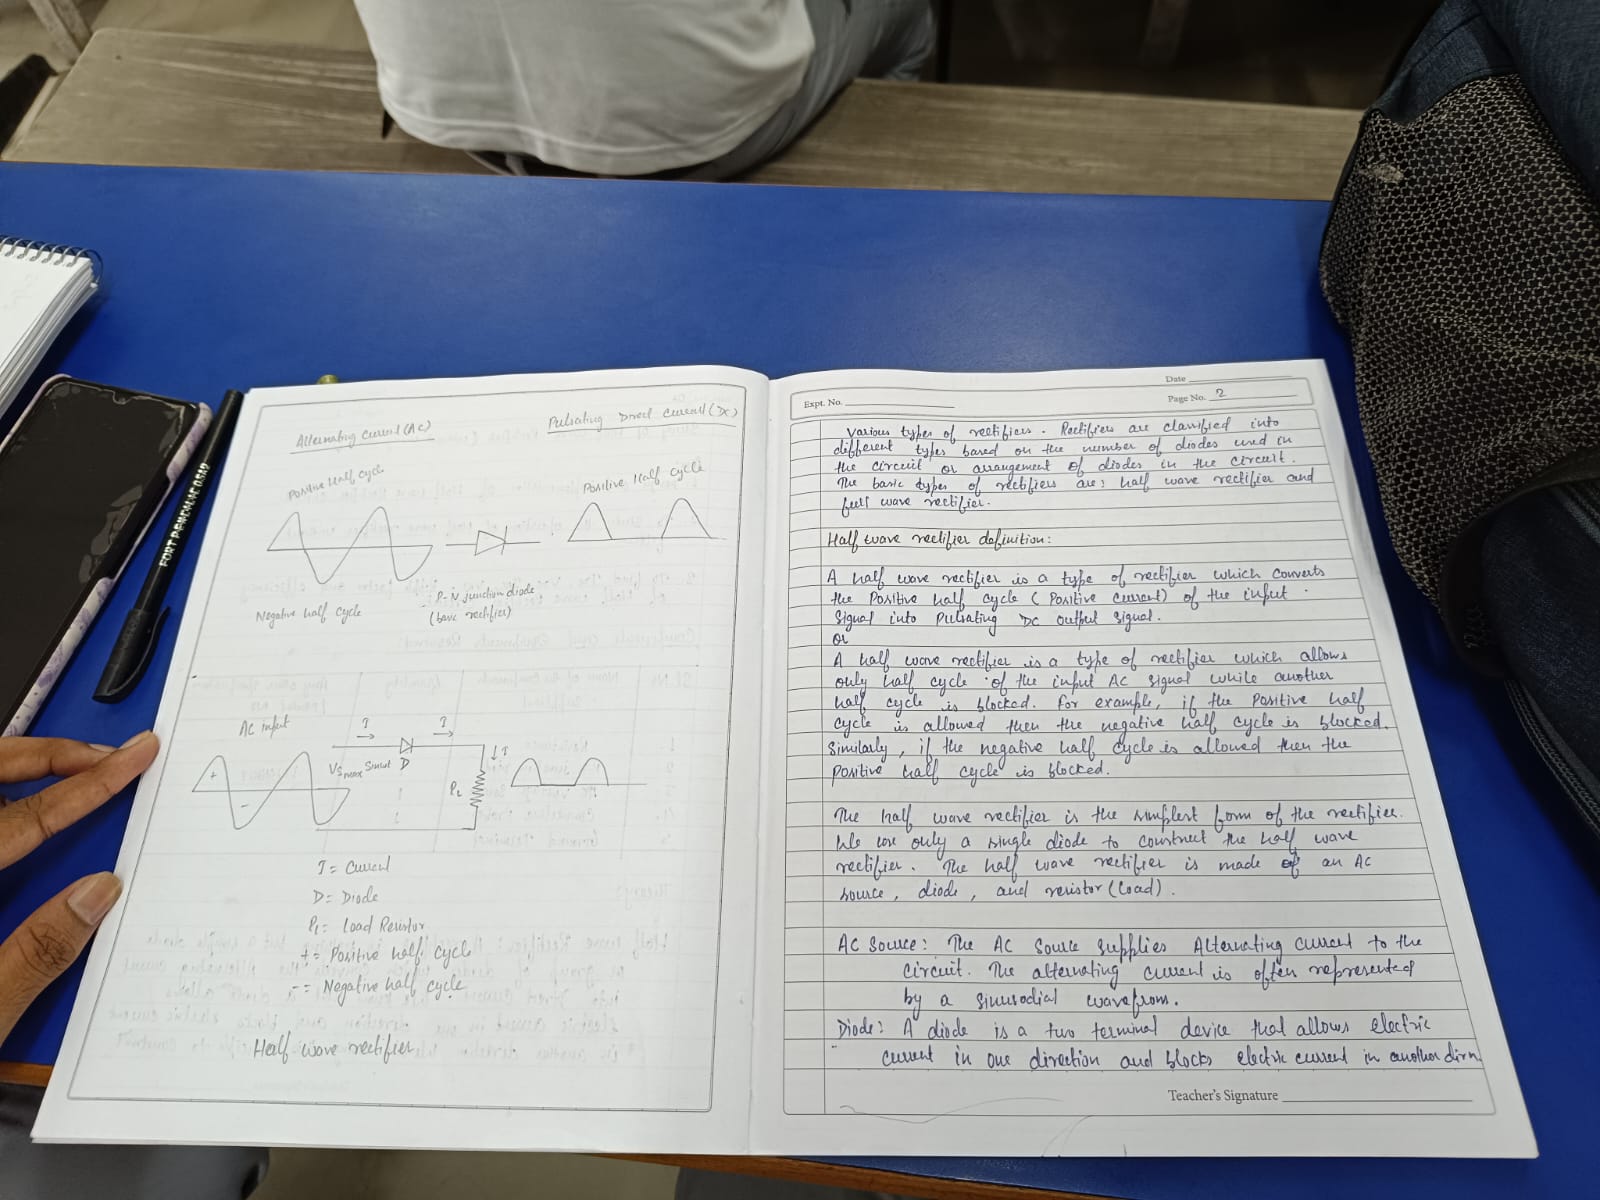 Alternating current (AC)
Pulsating Direct current (DC)
Positive half cycle
Positive Half cycle
Negative half cycle
P-N junction diode
(basic rectifier)
AC input
I
I
I
VSmax Sinωt
D
RL
+
-
I = Current
D = Diode
RL = Load Resistor
+ = Positive half cycle
- = Negative half cycle
Half wave rectifier
FORT PENCHALAC DAR
Date
Expt. No.
Page No. 2
Various types of rectifiers. Rectifiers are classified into
different types based on the number of diodes used in
the circuit or arrangement of diodes in the circuit.
The basic types of rectifiers are: half wave rectifier and
full wave rectifier.
Half wave rectifier definition:
A half wave rectifier is a type of rectifier which converts
the Positive half cycle (Positive current) of the input
Signal into Pulsating DC output signal.
or
A half wave rectifier is a type of rectifier which allows
only half cycle of the input AC signal while another
half cycle is blocked. For example, if the Positive half
cycle is allowed then the negative half cycle is blocked.
Similarly, if the negative half cycle is allowed then the
positive half cycle is blocked.
The half wave rectifier is the simplest form of the rectifier.
We use only a single diode to construct the half wave
rectifier. The half wave rectifier is made of an AC
source, diode, and resistor (load).
AC Source: The AC Source Supplies Alternating current to the
circuit. The alternating current is often represented
by a sinusodial wavefrom.
Diode: A diode is a two terminal device that allows electric
current in one direction and blocks electric current in another dirn.
Teacher's Signature